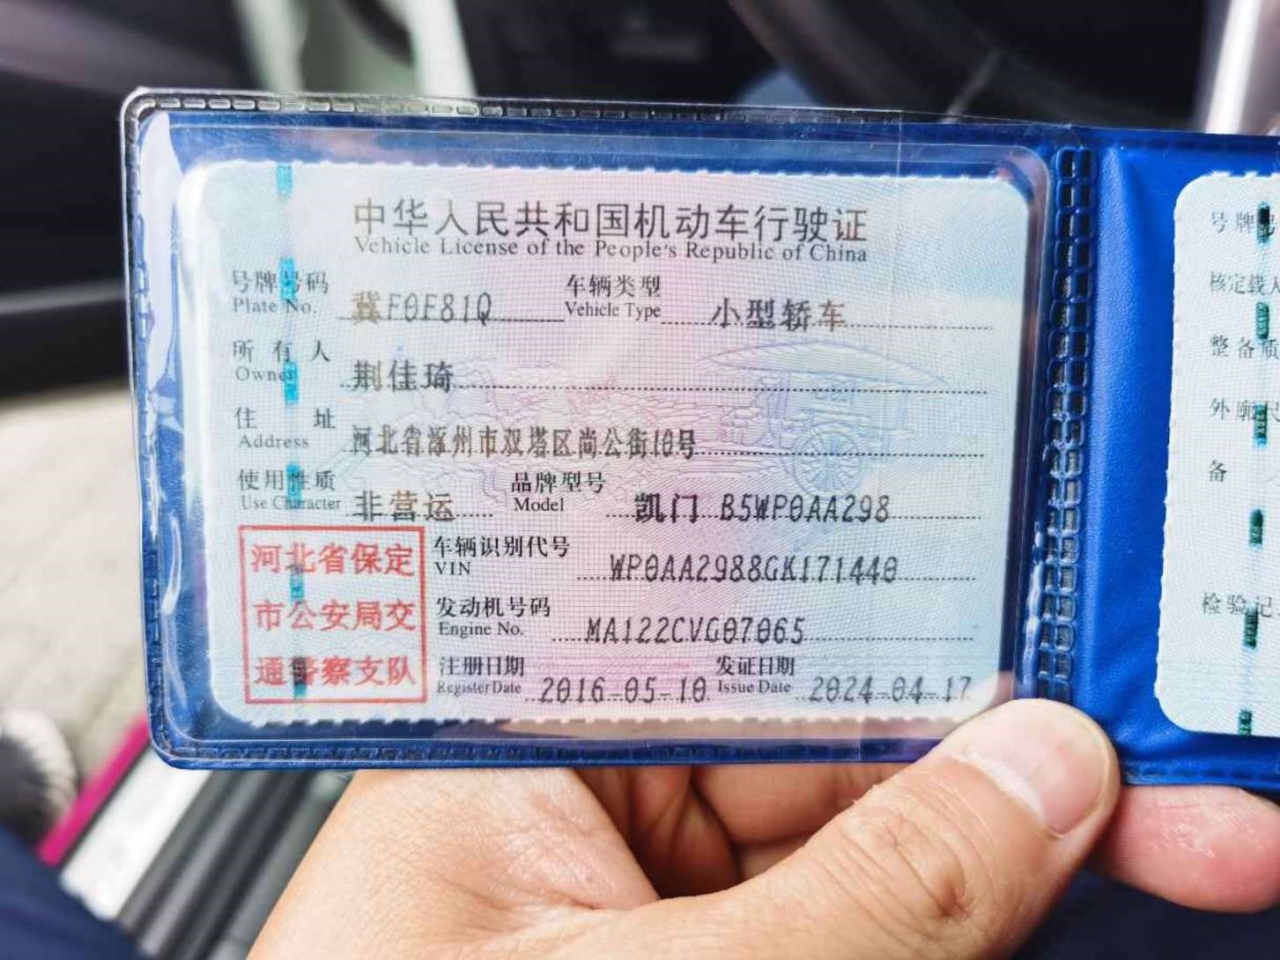 中华人民共和国机动车行驶证
Vehicle License of the People's Republic of China
号牌号码 冀F0F81Q 车辆类型 小型轿车
Plate No. Vehicle Type
所有人 荆佳琦
Owner
住址 河北省涿州市双塔区尚公街10号
Address
使用性质 非营运 品牌型号 凯门 B5WP0AA298
Use Character Model
河北省保定
市公安局交
通警察支队
车辆识别代号 WP0AA2988GK171440
VIN
发动机号码 MA122CVG07065
Engine No.
注册日期 2016-05-10 发证日期 2024-04-17
Register Date Issue Date
号牌
核定载人
整备质
外廓
备
检验记